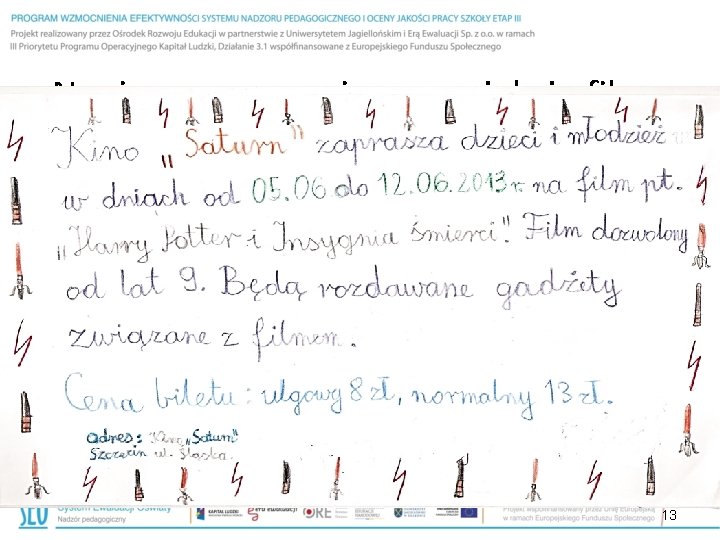 PROGRAM WZMOCNIENIA EFEKTYWNOŚCI SYSTEMU NADZORU PEDAGOGICZNEGO I OCENY JAKOŚCI PRACY SZKOŁY ETAP III
Projekt realizowany przez Ośrodek Rozwoju Edukacji w partnerstwie z Uniwersytetem Jagiellońskim i Erą Ewaluacji Sp. z o.o. w ramach
III Priorytetu Programu Operacyjnego Kapitał Ludzki, Działanie 3.1 współfinansowane z Europejskiego Funduszu Społecznego
Kino „Saturn" zaprasza dzieci i młodzież
w dniach od 05.06 do 12.06.2013 r. na film pt.
„Harry Potter i Insygnia śmierci". Film dozwolony
od lat 9. Będą rozdawane gadżety
związane z filmem.
Cena biletu: ulgowy 8 zł, normalny 13 zł.
adres: Kino „Saturn"
Szczecin ul. Śląska
System Ewaluacji Oświaty
Nadzór pedagogiczny
KAPITAŁ LUDZKI
ORE
Projekt współfinansowany przez Unię Europejską
w ramach Europejskiego Funduszu Społecznego
13